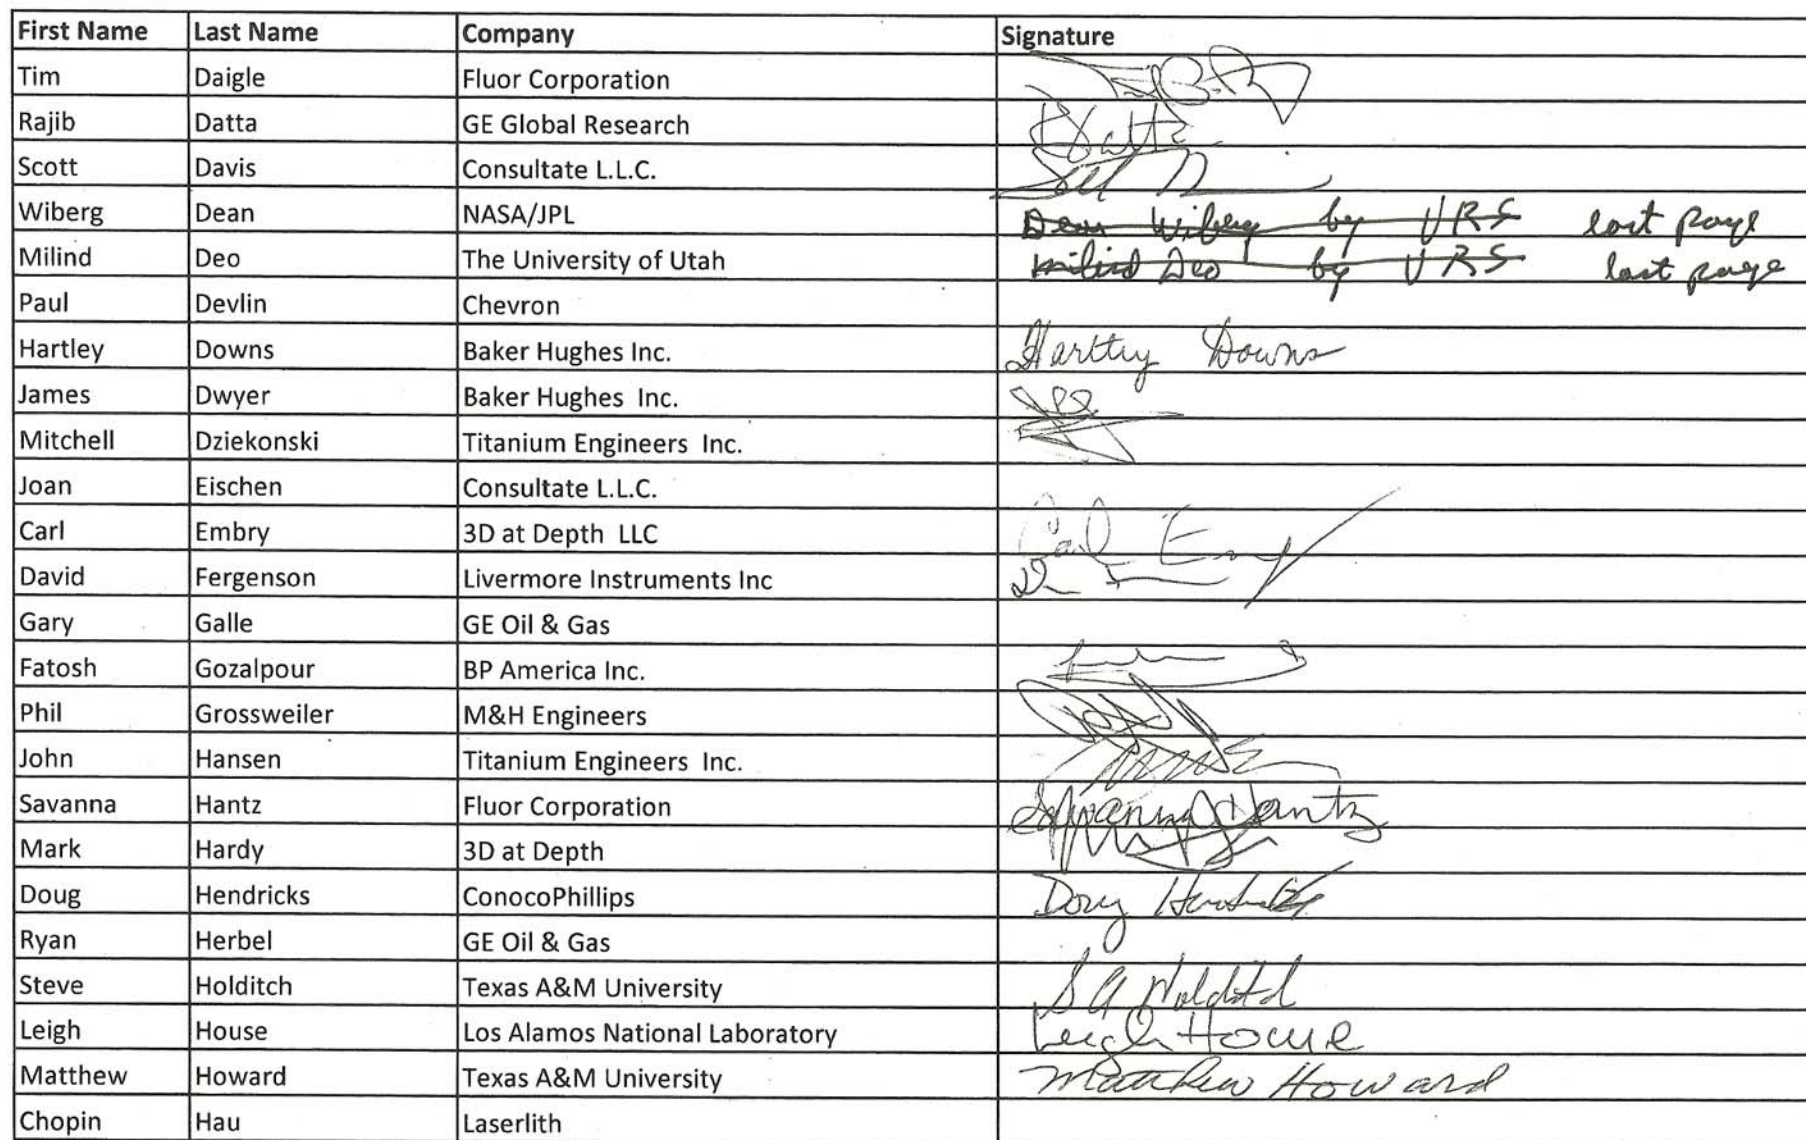 First Name Last Name Company Signature
Tim Daigle Fluor Corporation
Rajib Datta GE Global Research Datta
Scott Davis Consultate L.L.C.
Wiberg Dean NASA/JPL Dean Wiberg by VRS last page
Milind Deo The University of Utah Milind Deo by VRS last page
Paul Devlin Chevron
Hartley Downs Baker Hughes Inc. Hartley Downs
James Dwyer Baker Hughes Inc.
Mitchell Dziekonski Titanium Engineers Inc.
Joan Eischen Consultate L.L.C.
Carl Embry 3D at Depth LLC Carl
David Fergenson Livermore Instruments Inc
Gary Galle GE Oil & Gas
Fatosh Gozalpour BP America Inc.
Phil Grossweiler M&H Engineers
John Hansen Titanium Engineers Inc.
Savanna Hantz Fluor Corporation Savanna Hantz
Mark Hardy 3D at Depth
Doug Hendricks ConocoPhillips Doug
Ryan Herbel GE Oil & Gas
Steve Holditch Texas A&M University S A Holditch
Leigh House Los Alamos National Laboratory Leigh House
Matthew Howard Texas A&M University Matthew Howard
Chopin Hau Laserlith